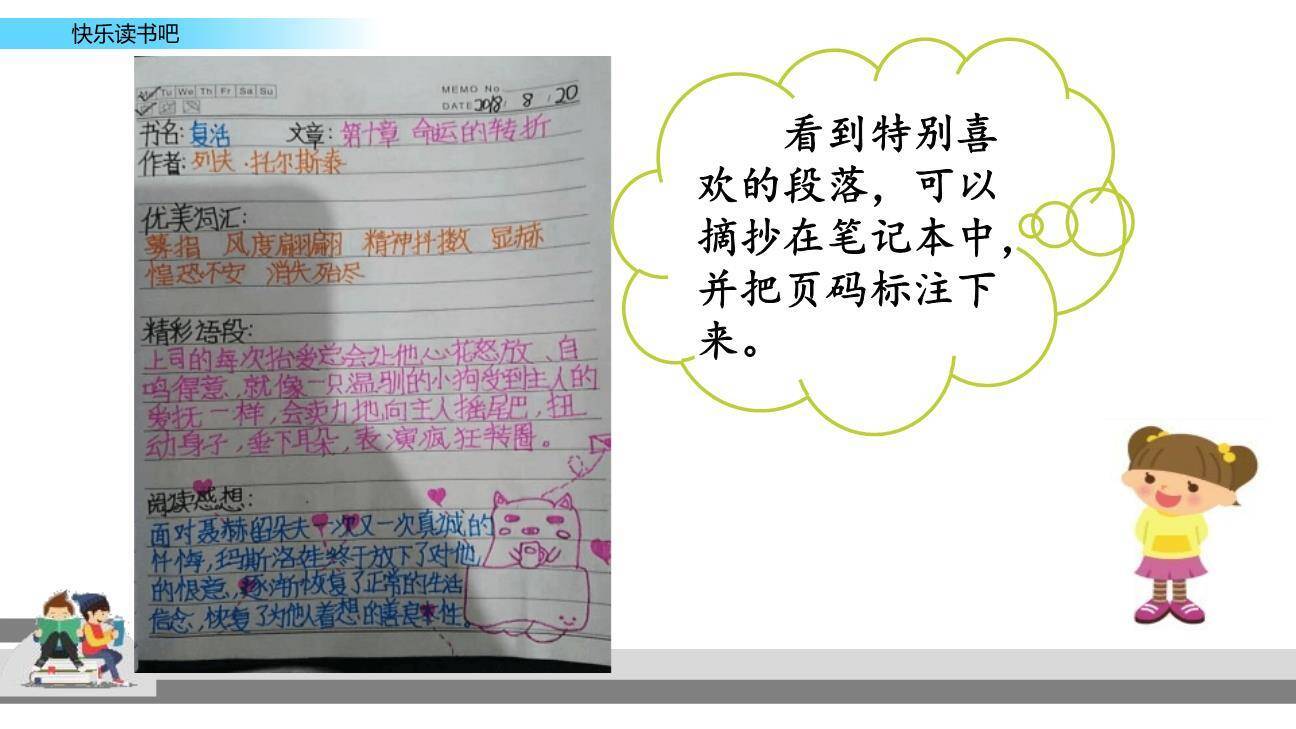 快乐读书吧
Mo Tu We Th Fr Sa Su
MEMO No
DATE 2018 / 8 / 20
书名：复活 文章：第十章 命运的转折
作者：列夫·托尔斯泰
优美词汇：
募捐 风度翩翩 精神抖擞 显赫
惶恐不安 消失殆尽
精彩语段：
上司的每次抬爱总会让他心花怒放、自
鸣得意，就像一只温驯的小狗受到主人的
爱抚一样，会卖力地向主人摇尾巴，扭
动身子，垂下耳朵，表演疯狂转圈。
阅读感想：
面对聂赫留朵夫一次又一次真诚的
忏悔，玛斯洛娃终于放下了对他
的恨意，逐渐恢复了正常的生活
信念，恢复了为他人着想的善良本性。
看到特别喜
欢的段落，可以
摘抄在笔记本中，
并把页码标注下
来。